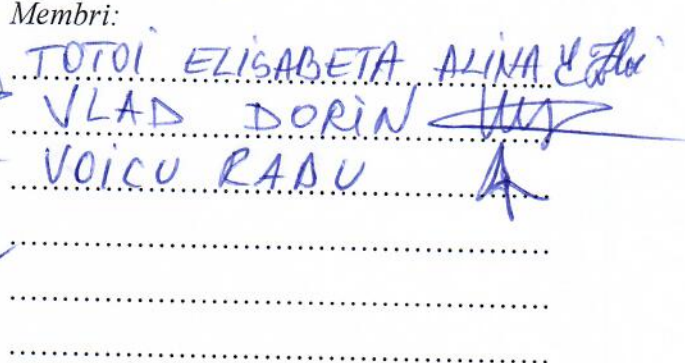 Membri:
TOTOI ELISABETA ALINA
VLAD DORIN
VOICU RADU